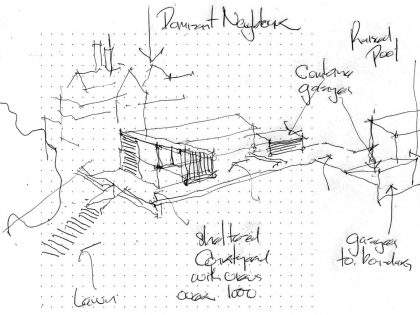 Dominant Neighbour
Raised
Pool
Combine
garages
Sheltered
Courtyard
with views
over
Lawn
garages
to boundary